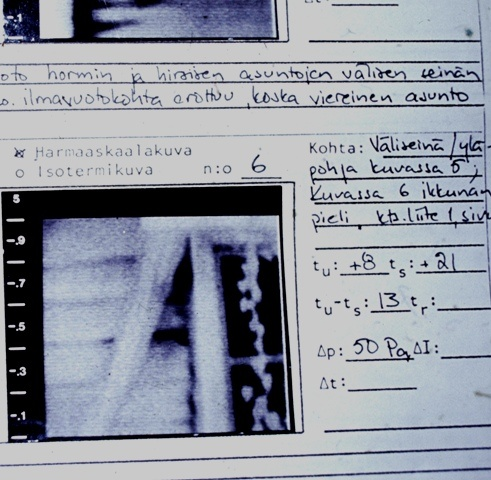 -.1
Δt:
oto hormin ja hirsisen asuntojen välisen seinän
ilmavuotokohta erottuu, koska viereinen asunto
Harmaaskaalakuva
o Isotermikuva n:o 6
Kohta: Väliseinä/ylä-
pohja kuvassa 5,
Kuvassa 6 ikkunan
pieli. kts. liite 1, sivu
tu: +8 ts: +21
tu-ts: 13 tr:
Δp: 50 Pa ΔI:
Δt:
5
-.9
-.7
-.5
-.3
-.1